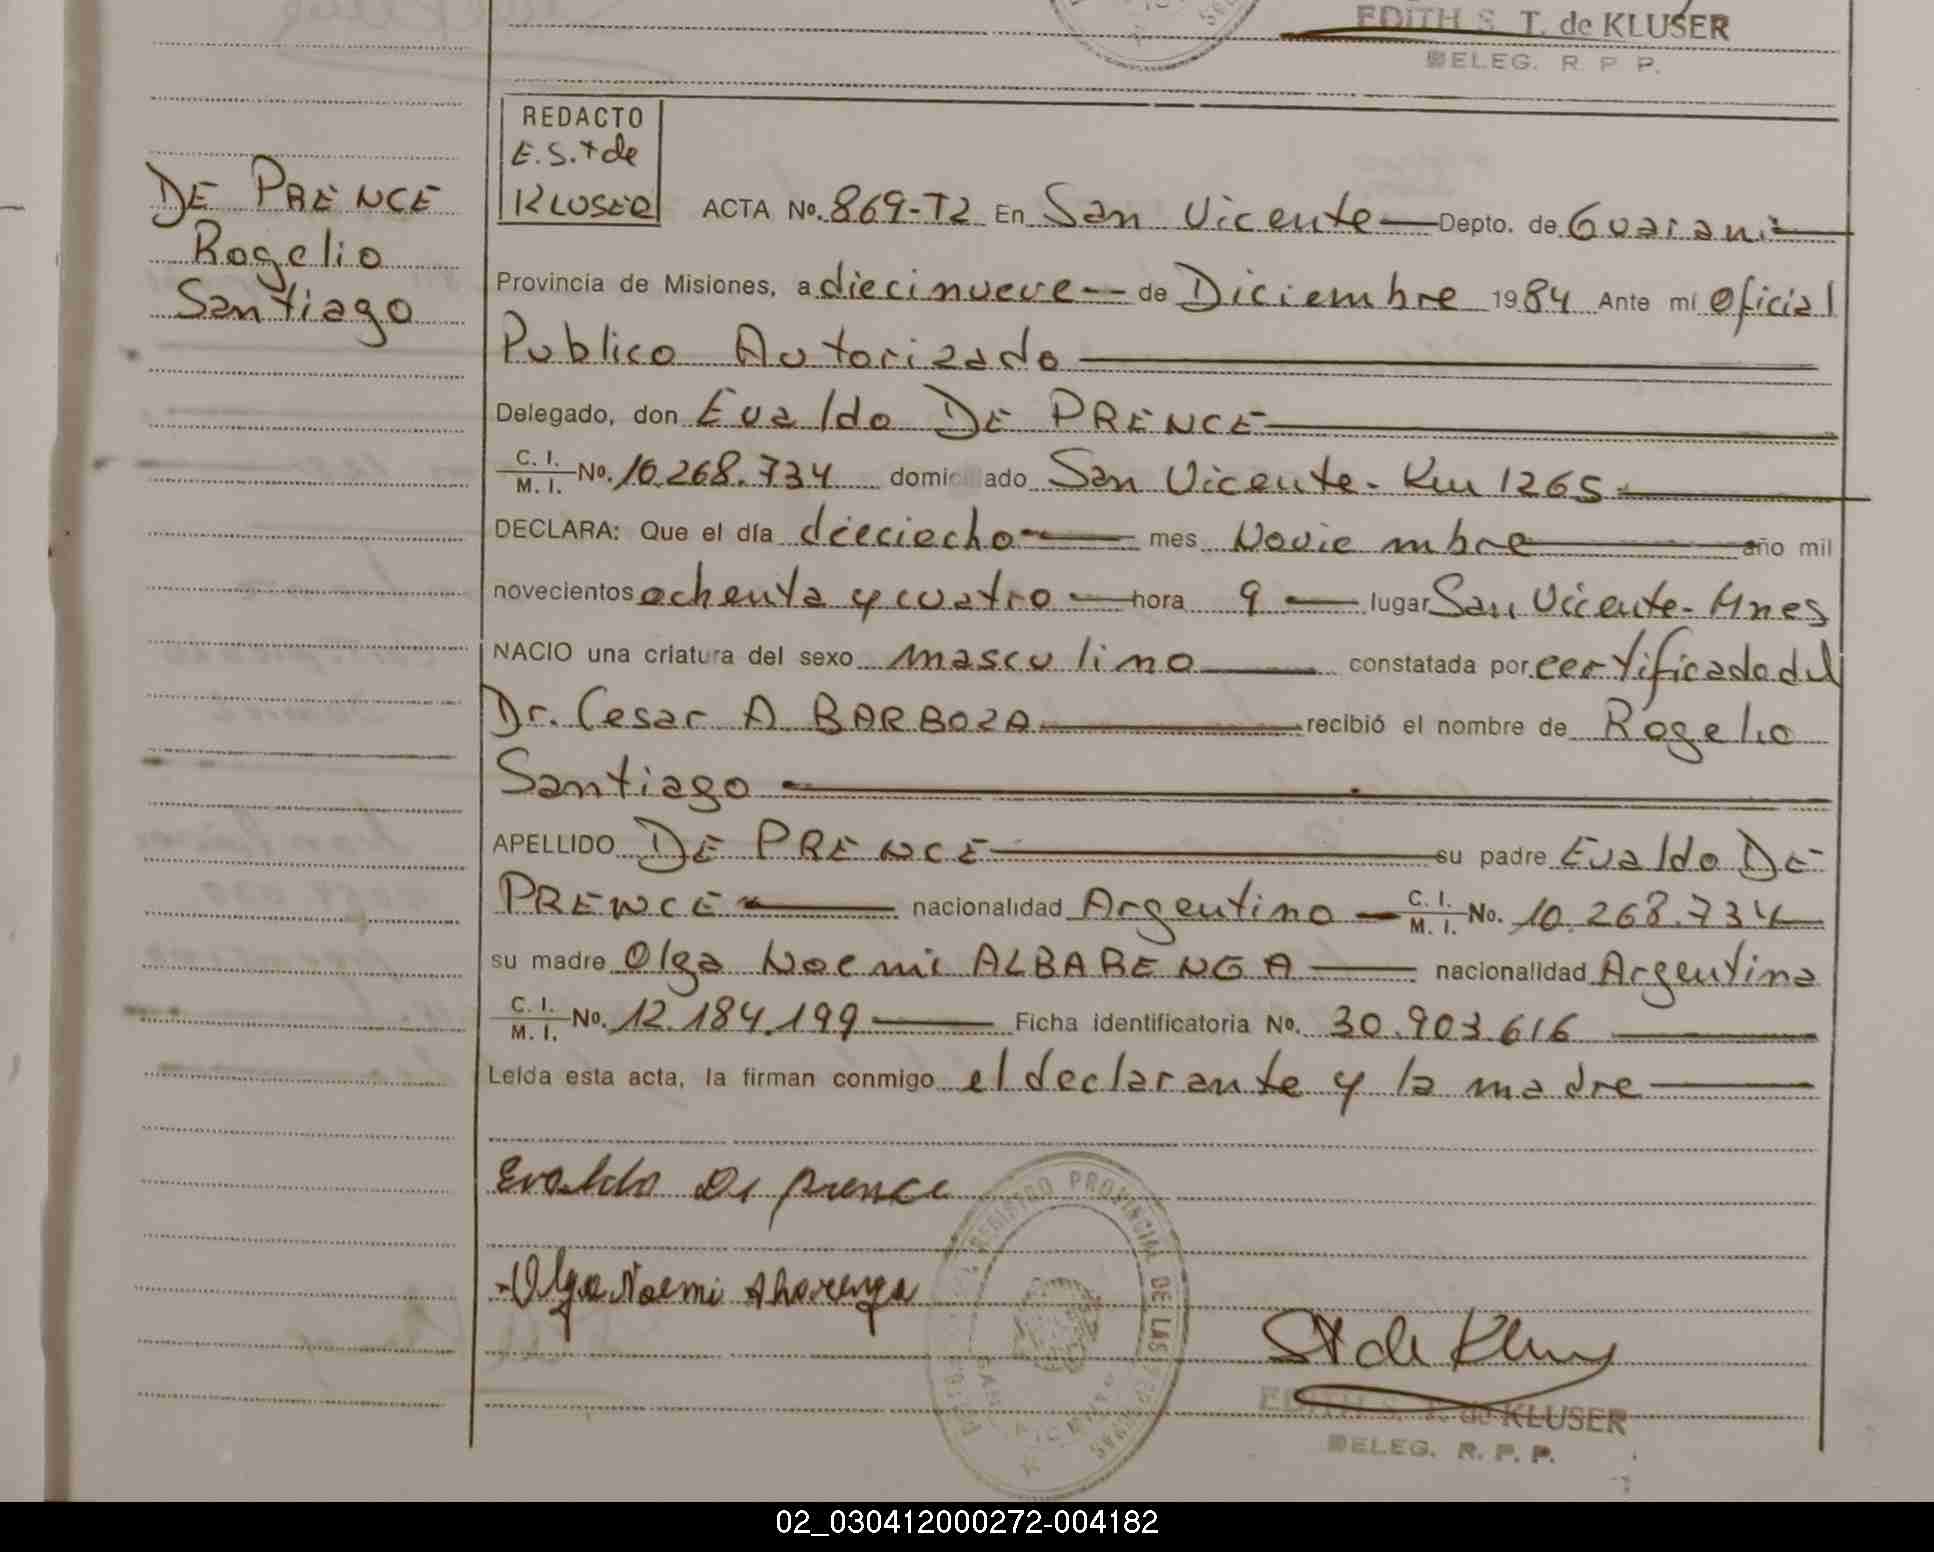 EDITH S. T. de KLUSER
DELEG. R. P. P.
DE PRENCE
Rogelio
Santiago
REDACTO
E.S.T de
KLUSER
ACTA No. 869-T2 En San Vicente Depto. de Guarani
Provincia de Misiones, a diecinueve de Diciembre 1984 Ante mí Oficial
Publico Autorizado
Delegado, don Evaldo DE PRENCE
C. I. / M. I. No. 10.268.734 domiciliado San Vicente - Km 1265
DECLARA: Que el día dieciocho mes Noviembre año mil
novecientos ochenta y cuatro hora 9 lugar San Vicente - Mnes
NACIO una criatura del sexo masculino constatada por certificado del
Dr. Cesar A BARBOZA recibió el nombre de Rogelio
Santiago
APELLIDO DE PRENCE su padre Evaldo DE
PRENCE nacionalidad Argentino C. I. / M. I. No. 10.268.734
su madre Olga Noemi ALBARENGA nacionalidad Argentina
C. I. / M. I. No. 12.184.199 Ficha identificatoria No. 30.903.616
Leída esta acta, la firman conmigo el declarante y la madre
Evaldo De prence
Olga Noemi
REGISTRO PROVINCIAL DE LAS PERSONAS
SAN VICENTE
St de Kluser
EDITH S. T. de KLUSER
DELEG. R. P. P.
02_030412000272-004182